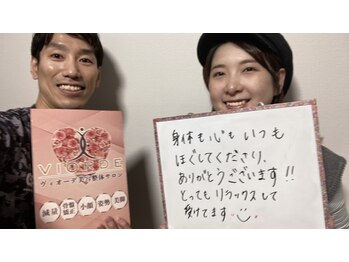 VIOLDE
ヴィオーデ美容整体サロン
減量 骨盤矯正 小顔 姿勢 美脚
身体も心も いつも
ほぐしてくださり、
ありがとうございます!!
とっても リラックスして
受けてます